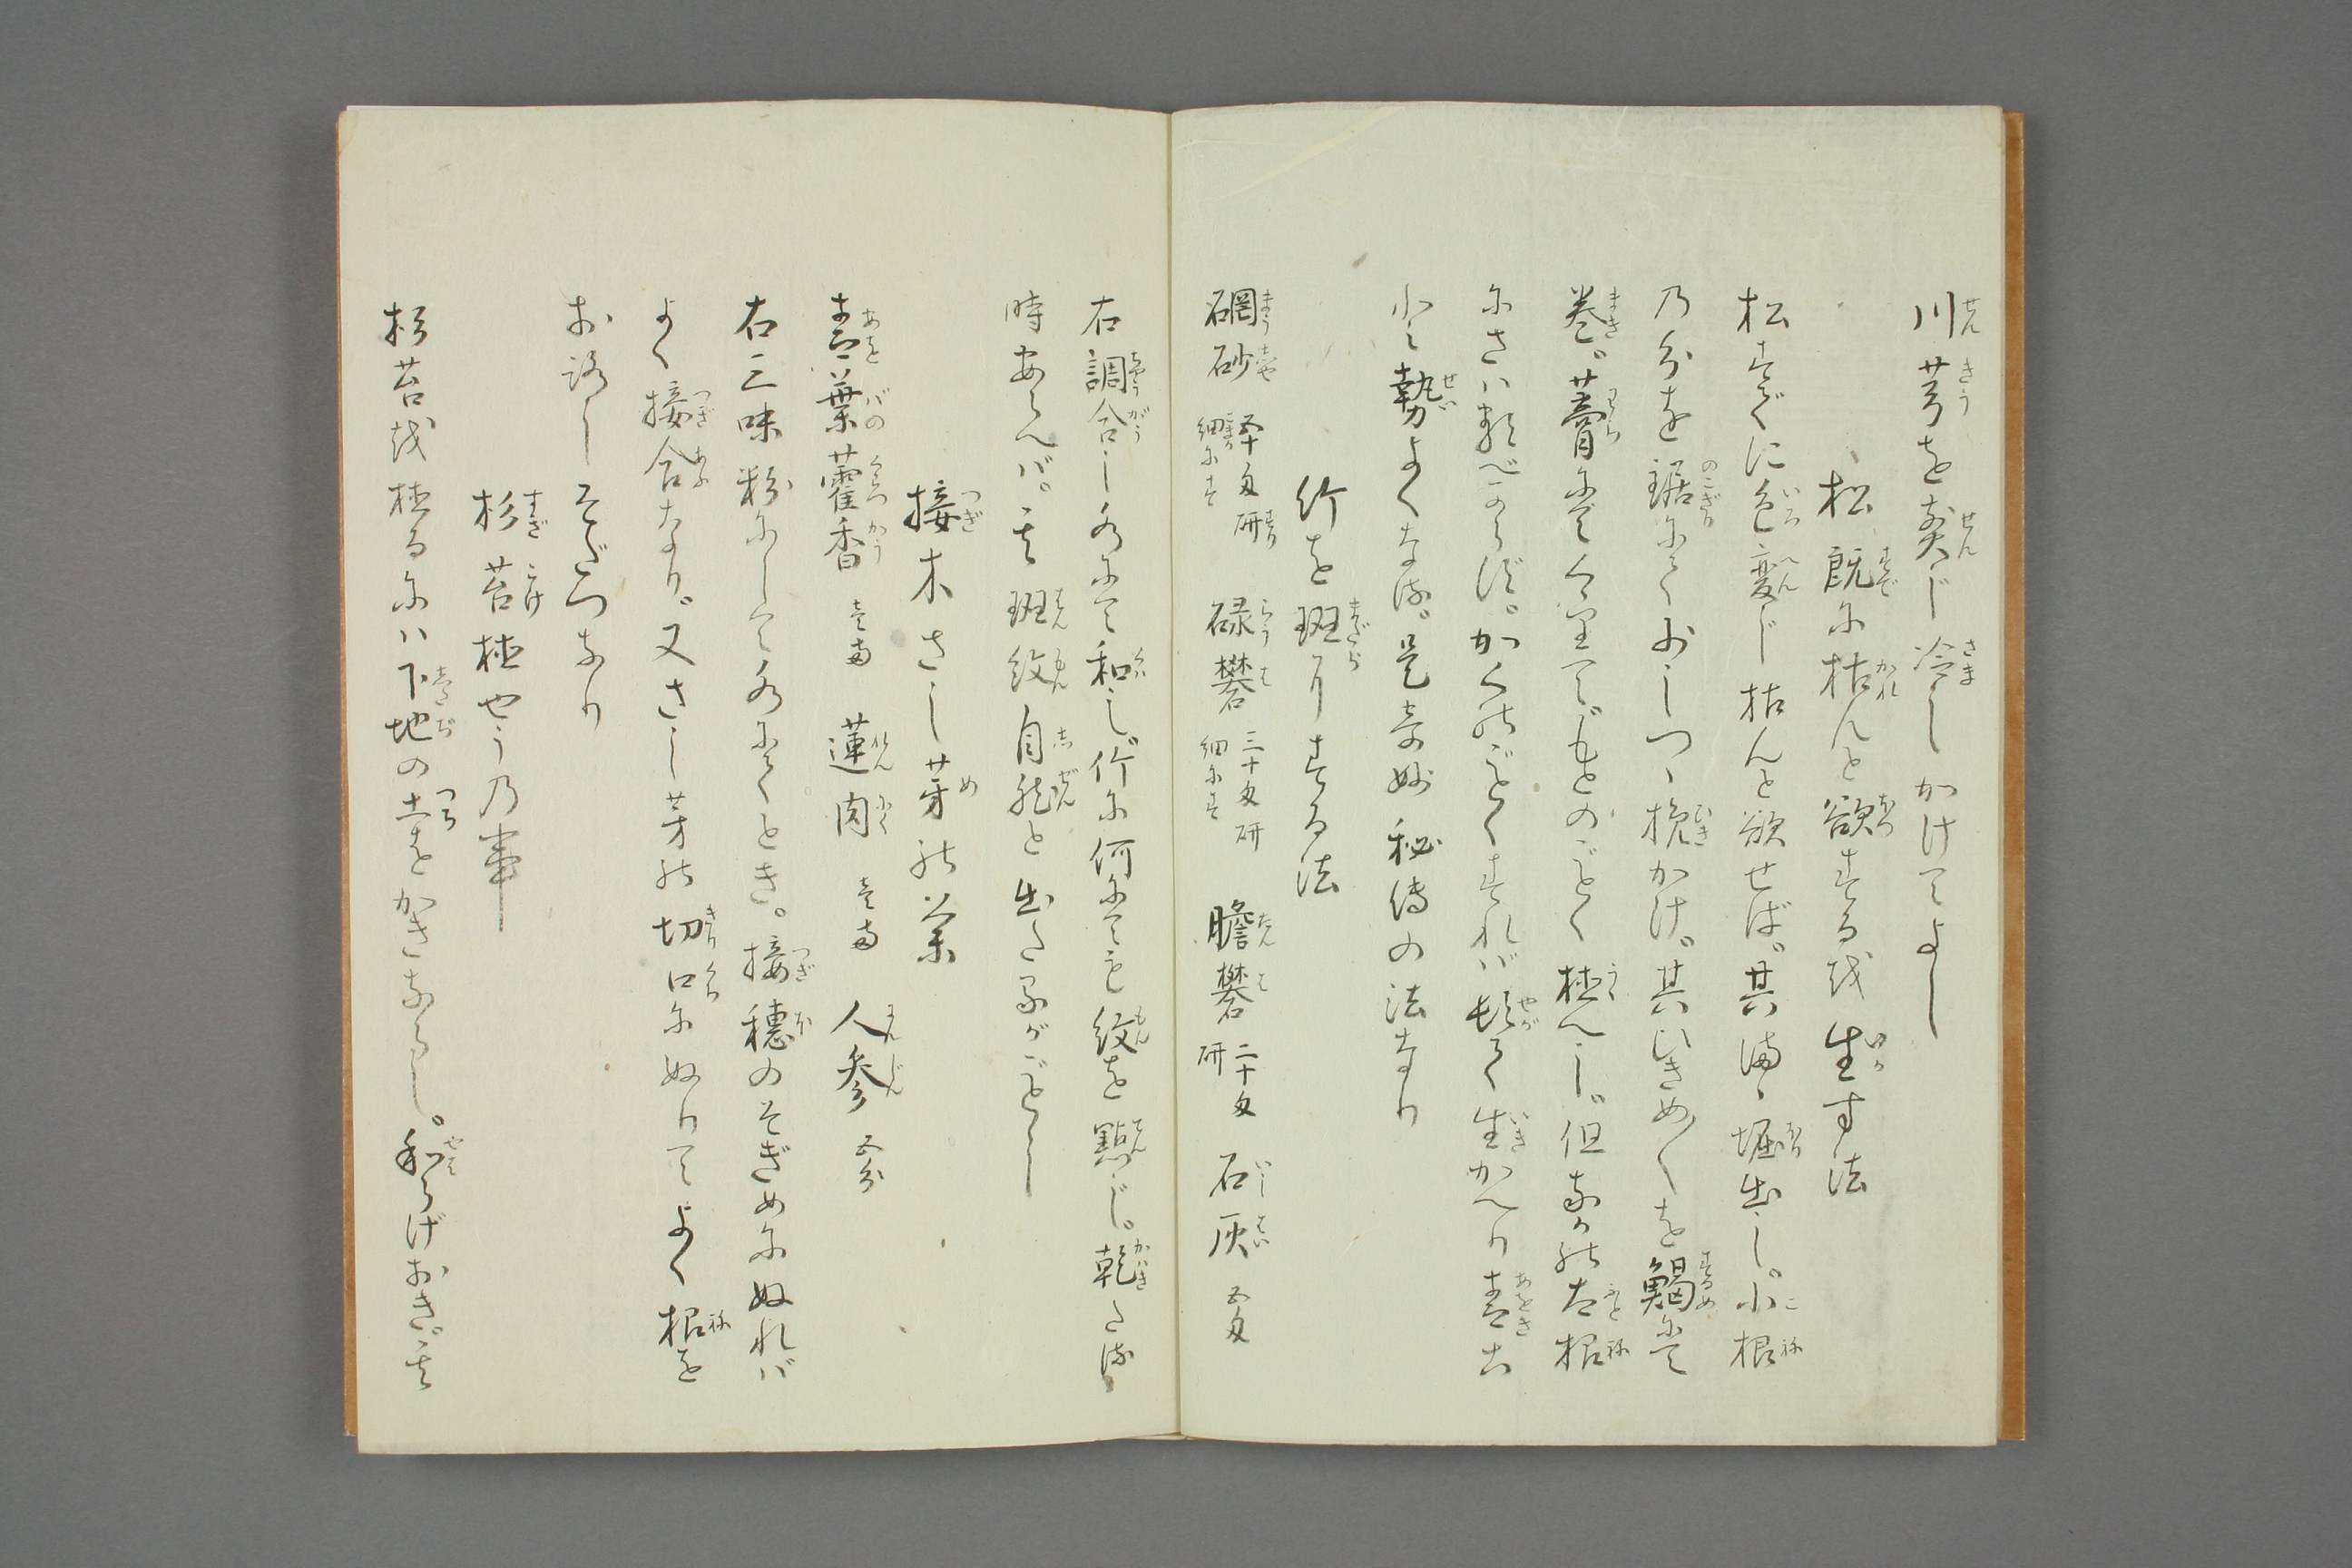 川芎を煎じ冷しかけてよし
松既に枯んと欲するを生す法
松すでに色変じ枯んと欲せば。其侭堀出し。小根
乃分を鋸にておしつゝ挽かけ。其ひきめ〳〵を鯣にて
巻。藁にてくゝりて。もとのごとく植べし。但なるたけ太根
にさハるべからず。かくのごとくすれバ頓て生かへり青き
こと勢よくなる。是奇妙秘傳の法なり
竹を斑りする法
碙砂 五十匁研細にす 碌礬 三十匁研細にす 膽礬 二十匁研 石灰 五匁
右調合し水にて和し。竹に何にても紋を點じ。乾たる
時あらへバ。其斑紋自然と出たるがごとし
接木さし芽の薬
青葉藿香 壱両 蓮肉 壱両 人参 五分
右三味粉にして水にてとき。接穂のそぎめにぬれバ
よく接合なり。又さし芽の切口にぬりてよく根を
おろしそだつなり
杉苔植やう乃事
杉苔を植るにハ下地の土をかきならし。和らげおき。其